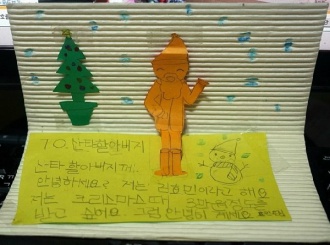 TO. 산타할아버지
산타할아버지께..
안녕하세요? 저는 민이라고 해요
저는 크리스마스때
받고 싶어요 그럼 안녕히 계세요